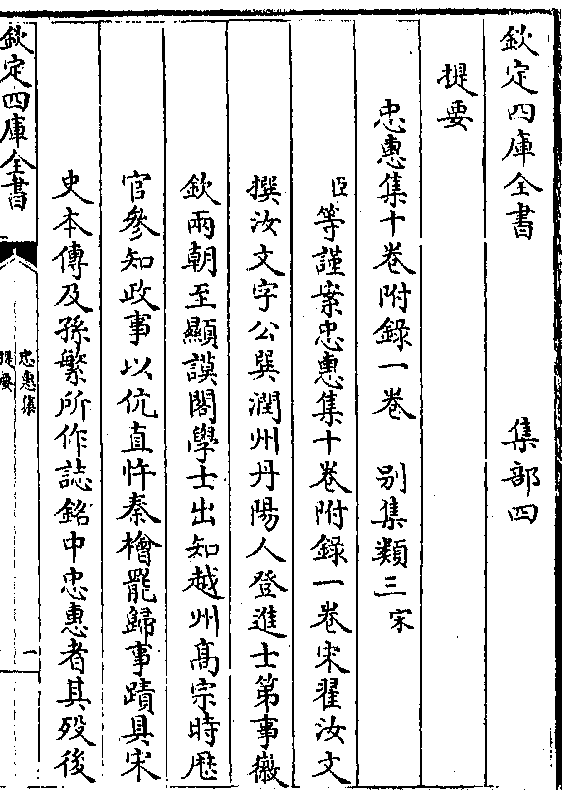 欽定四庫全書　集部四
提要
忠惠集十卷附錄一卷　別集類三宋
臣等謹案忠惠集十卷附錄一卷宋翟汝文
撰汝文字公巽潤州丹陽人登進士第事徽
欽兩朝至顯謨閣學士出知越州髙宗時歴
官參知政事以伉直忤秦檜罷歸事蹟具宋
史本傳及孫繁所作誌銘中忠惠者其殁後
欽定四庫全書
忠惠集
提要
一